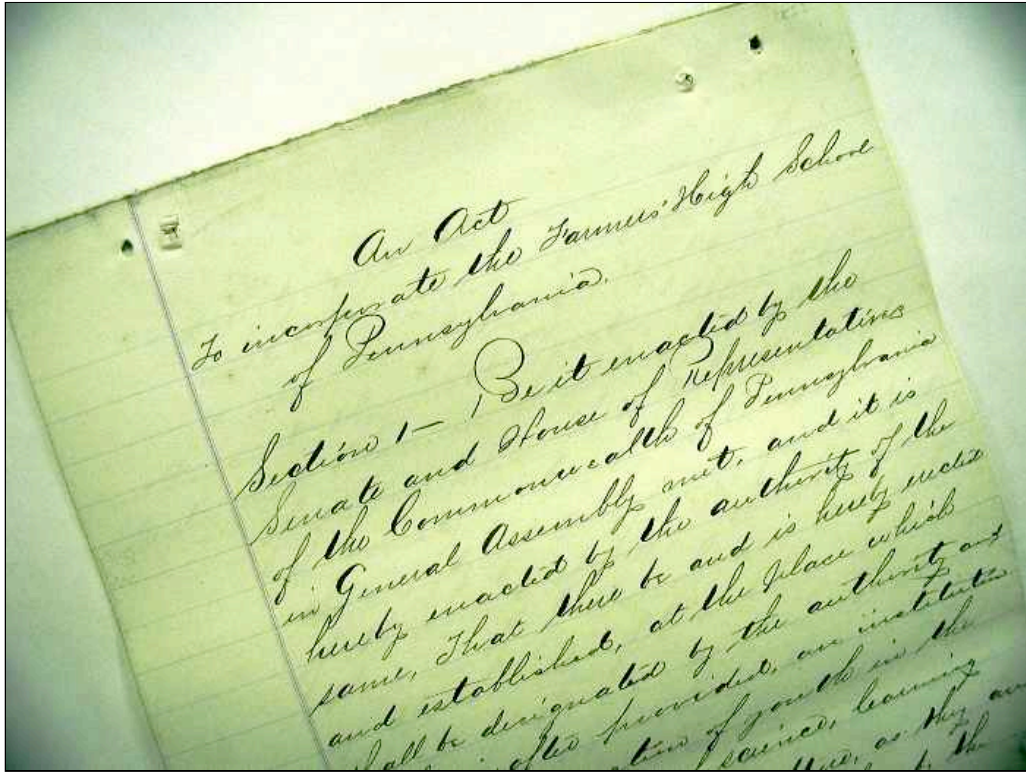 An Act
To incorporate the Farmers' High School
of Pennsylvania.
Section 1 — Be it enacted by the
Senate and House of Representatives
of the Commonwealth of Pennsylvania
in General Assembly met, and it is
hereby enacted by the authority of the
same, That there be and is hereby erected
and established, at the place which
shall be designated by the authority and
after provided, an institution
of youth in the
science, learning
as they
the